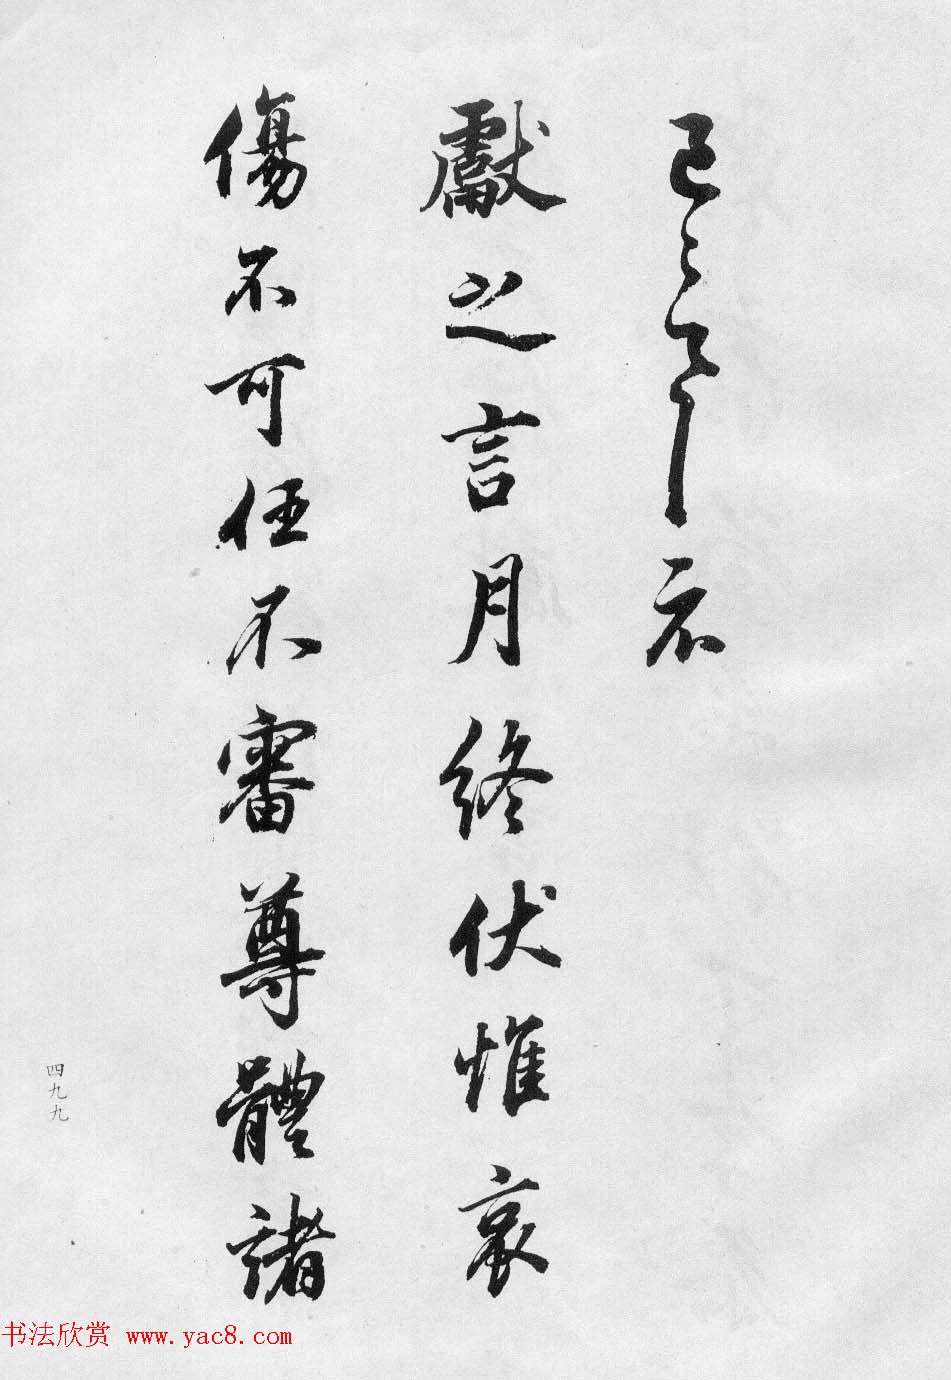 已
獻之言月終伏惟哀
傷不可任不審尊體諸
四九九
书法欣赏 www.yac8.com